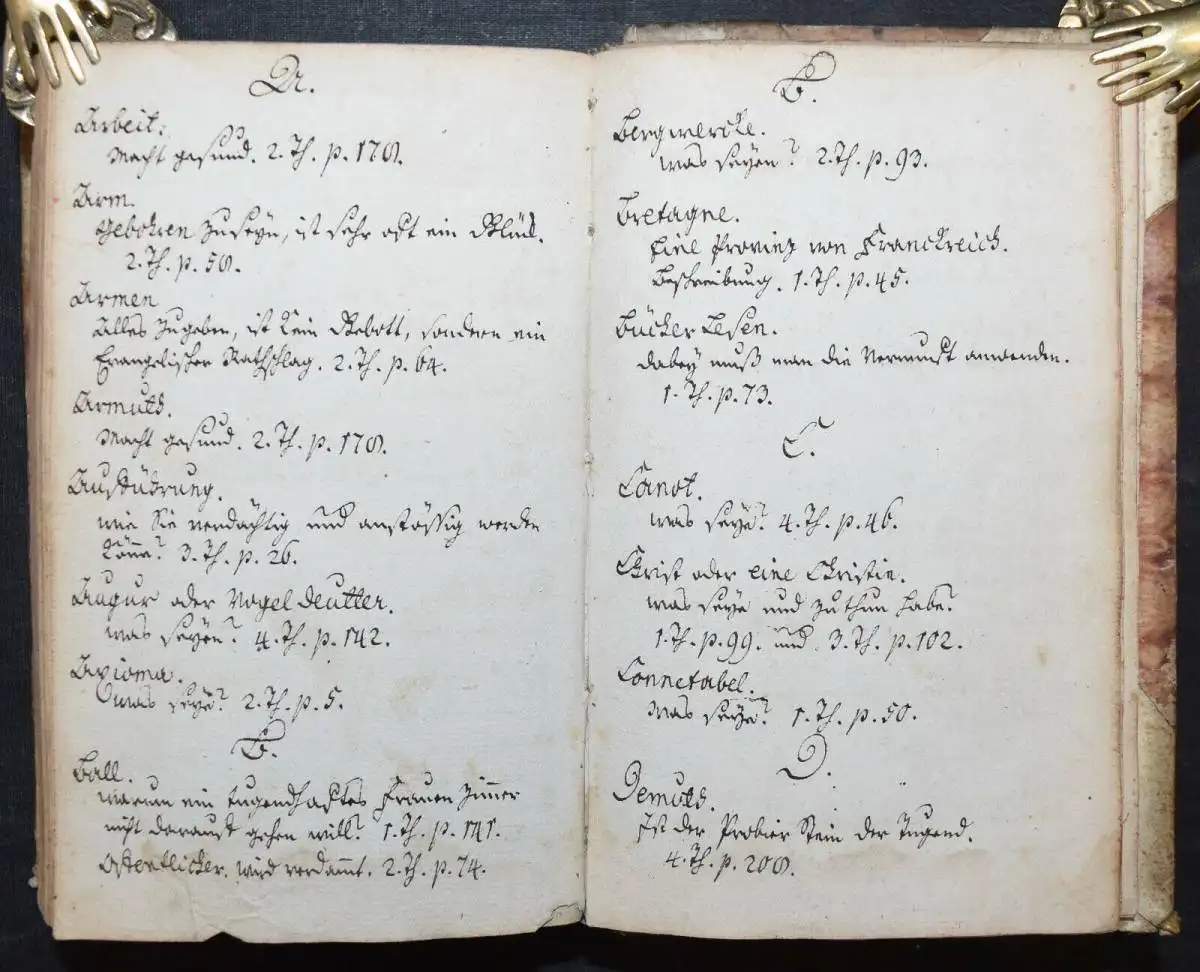 A.
Arbeit:
Macht gesund. 2. Th. p. 178.
Arm.
Gebohren zu seyn, ist sehr oft ein Glück.
2. Th. p. 58.
Armen
Alles zu geben, ist kein Gebott, sondern ein
Evangelischer Rathschlag. 2. Th. p. 64.
Armuth.
Macht gesund. 2. Th. p. 178.
Aufführung.
wie Sie verdächtig und anstössig werden
könne? 3. Th. p. 26.
Augur oder Vogel deutter.
was seyen? 4. Th. p. 142.
Axioma.
was seye? 2. Th. p. 5.
B.
Ball.
warum ein tugendhaftes Frauen Zimmer
nicht darauf gehen will? 1. Th. p. 141.
Öffentlicher. wird verdammt. 2. Th. p. 74.
B.
Bergwercke.
was seyen? 2. Th. p. 93.
Bretagne.
Eine Provinz von Franckreich.
Beschreibung. 1. Th. p. 45.
Bücher Lesen.
dabey muß man die Vernunft anwenden.
1. Th. p. 73.
C.
Canot.
was seye? 4. Th. p. 46.
Christ oder eine Christin.
was seye und zu thun habe?
1. Th. p. 99. und 3. Th. p. 102.
Connetabel.
Was seye? 1. Th. p. 50.
D.
Demuth.
Ist der Probier Stein der Tugend.
4. Th. p. 208.